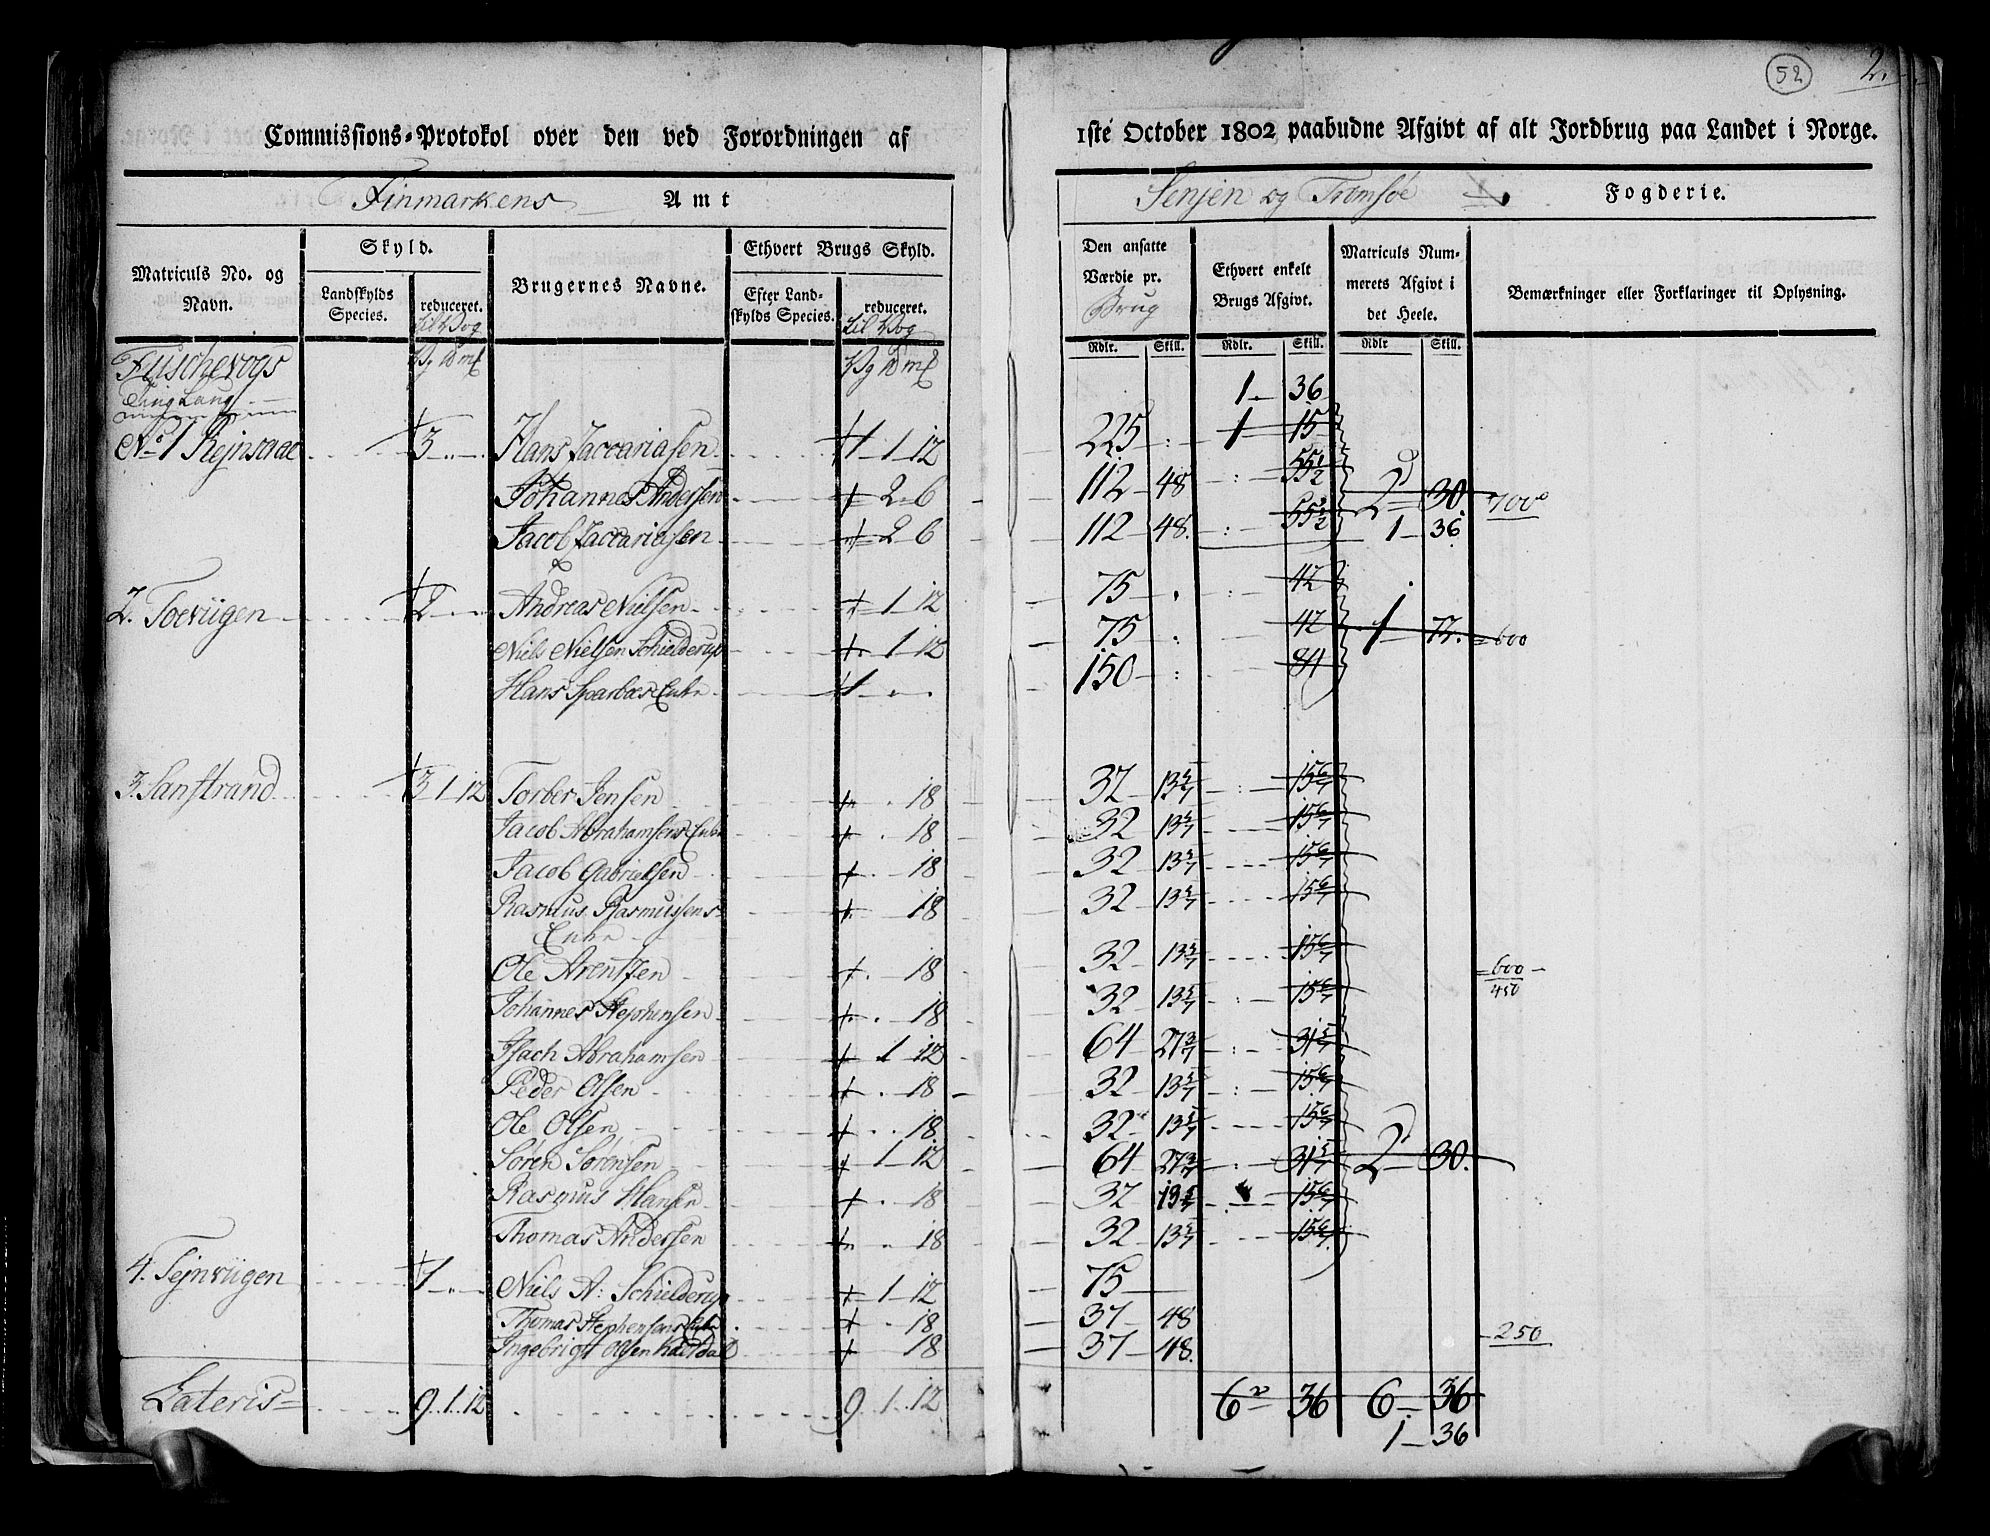 52 2.
Commissions-Protokol over den ved Forordningen af 1ste October 1802 paabudne Afgivt af alt Jordbrug paa Landet i Norge.
Finmarkens Amt Senjen og Tromsöe Fogderie.
Matriculs No. og Navn.
Skyld.
Landskylds Species.
reduceret. til Vog
Brugernes Navne.
Ethvert Brugs Skyld.
Efter Landskylds Species.
reduceret. til Vog
Den ansatte Værdie pr. Brug
Ethvert enkelt Brugs Afgivt.
Matriculs Nummerets Afgivt i det Heele.
Bemærkninger eller Forklaringer til Oplysning.
Rdlr. Skill. Rdlr. Skill. Rdlr Skill.
Ting Laug
1 36
No 1 3 Hans Zaccariasen 1 1 12 225 1 15
Johannes Andersen 2 6 112 48 55 1/2 2 30 700
Jacob Zaccariasen 2 6 112 48 55 1/2 1 36
2. Toeviigen 2 Andreas Nielsen 1 12 75 42
Niels Nielsen Schielderup 1 12 75 42 1 72 600
Hans Sparboes Enke 1 150 84
3. Sanstrand 3 1 12 Torber Jensen 18 32 13 5/7 15 6/7
Jacob Abrahamsens Enke 18 32 13 5/7 15 6/7
Jacob Gabrielsen 18 32 13 5/7 15 6/7
Rasmus Rasmussens Enke 18 32 13 5/7 15 6/7
Ole Arentzen 18 32 13 5/7 15 6/7 600
Johannes Stephensen 18 32 13 5/7 15 6/7 450
Isach Abrahamsen 1 12 64 27 3/7 31 5/7
Peder Olsen 18 32 13 5/7 15 6/7
Ole Olsen 18 32 13 5/7 15 6/7
Sören Sörensen 1 12 64 27 3/7 31 5/7 2 30
Rasmus Hansen 18 32 13 5/7 15 6/7
Thomas Andersen 18 32 13 5/7 15 6/7
4. 1 Niels A: Schielderup 1 12 75
Thomas Stephensens Enke 18 37 48
Ingebrigt Olsen 18 37 48 250
Lateris 9 1 12 9 1 12 6 36 6 36
1 36